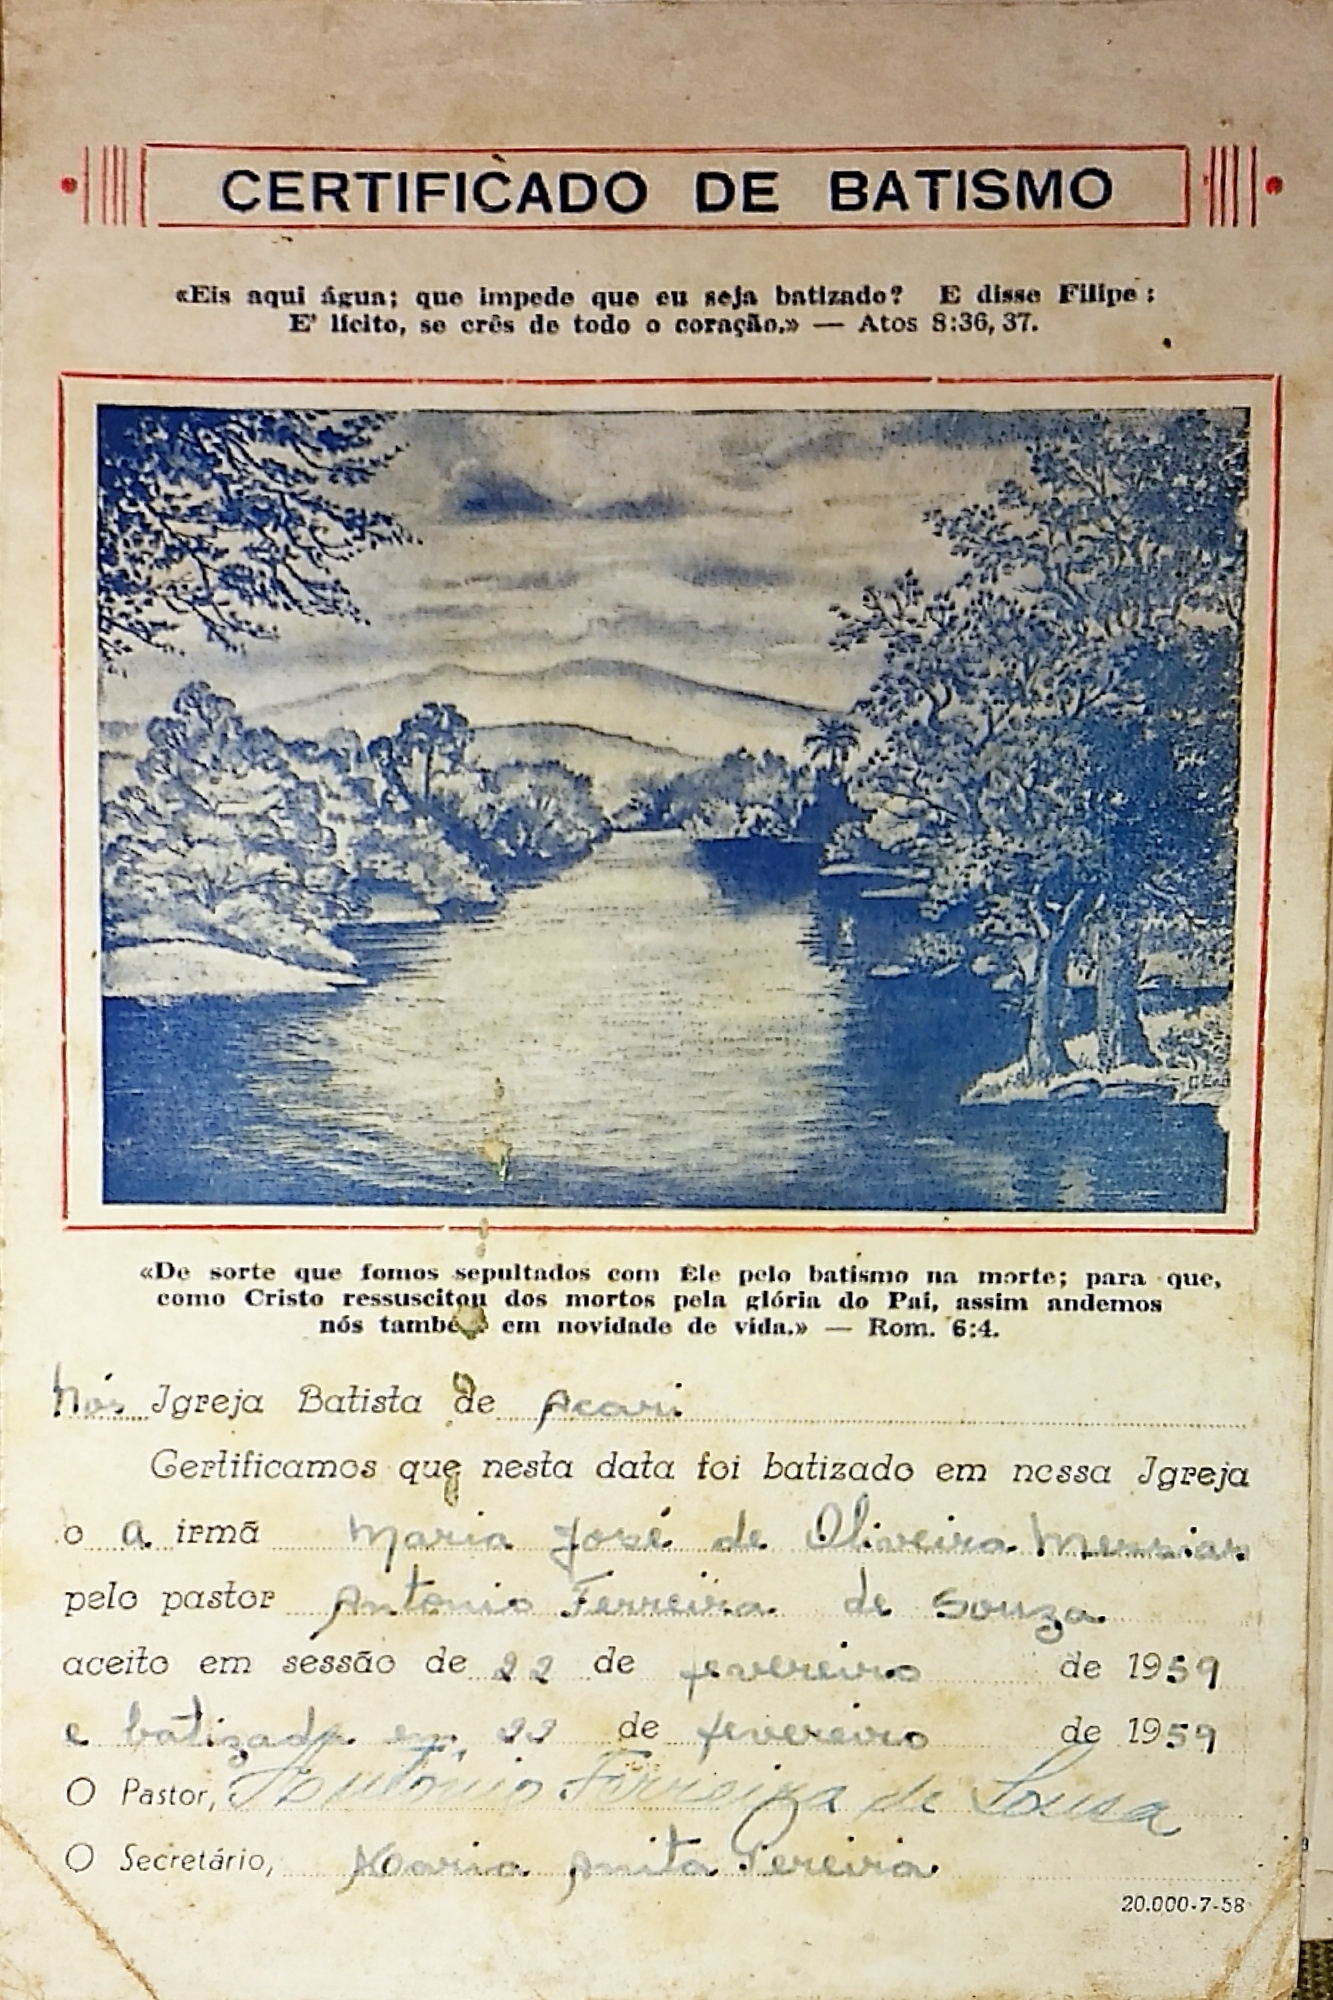 CERTIFICADO DE BATISMO
«Eis aqui água; que impede que eu seja batizado? E disse Filipe:
E' lícito, se crês de todo o coração.» — Atos 8:36, 37.
«De sorte que fomos sepultados com Ele pelo batismo na morte; para que,
como Cristo ressuscitou dos mortos pela glória do Pai, assim andemos
nós também em novidade de vida.» — Rom. 6:4.
Nós Igreja Batista de Acari
Certificamos que nesta data foi batizado em nossa Igreja
o a irmã Maria José de Oliveira Messias
pelo pastor Antonio Ferreira de Souza
aceito em sessão de 22 de fevereiro de 1959
e batizada em 22 de fevereiro de 1959
O Pastor, Antônio Ferreira de Sousa
O Secretário, Maria Anita Pereira
20.000-7-58